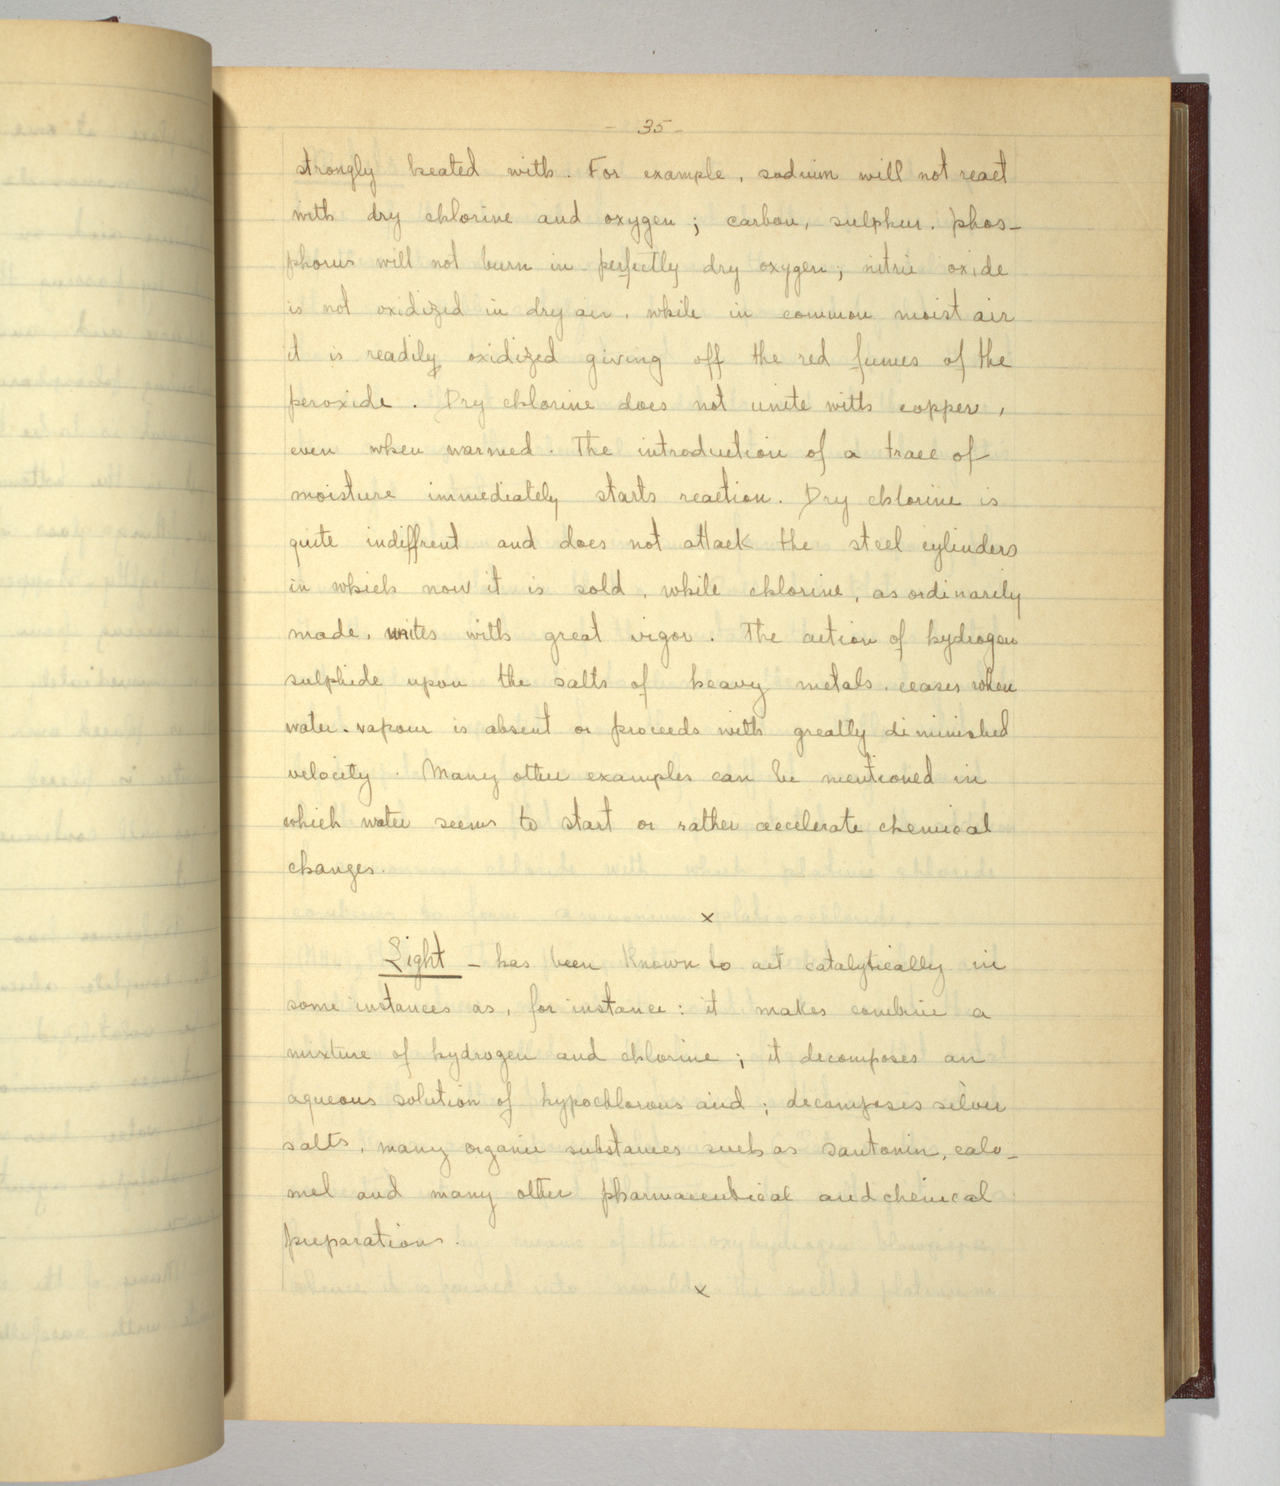 - 35 -
strongly heated with. For example, sodium will not react
with dry chlorine and oxygen; carbon, sulphur. phos-
phorus will not burn in perfectly dry oxygen; nitric oxide
is not oxidized in dry air, while in common moist air
it is readily oxidized giving off the red fumes of the
peroxide. Dry chlorine does not unite with copper,
even when warmed. The introduction of a trace of
moisture immediately starts reaction. Dry chlorine is
quite indiffrent and does not attack the steel cylinders
in which now it is sold, while chlorine, as ordinarily
made, unites with great vigor. The action of hydrogen
sulphide upon the salts of heavy metals. ceases when
water-vapour is absent or proceeds with greatly diminished
velocity. Many other examples can be mentioned in
which water seems to start or rather accelerate chemical
changes.
x
Light - has been known to act catalytically in
some instances as, for instance: it makes combine a
mixture of hydrogen and chlorine; it decomposes an
aqueous solution of hypochlorous acid; decomposes silver
salts, many organic substances such as santonin, calo-
mel and many other pharmaceutical and chemical
preparations.
x